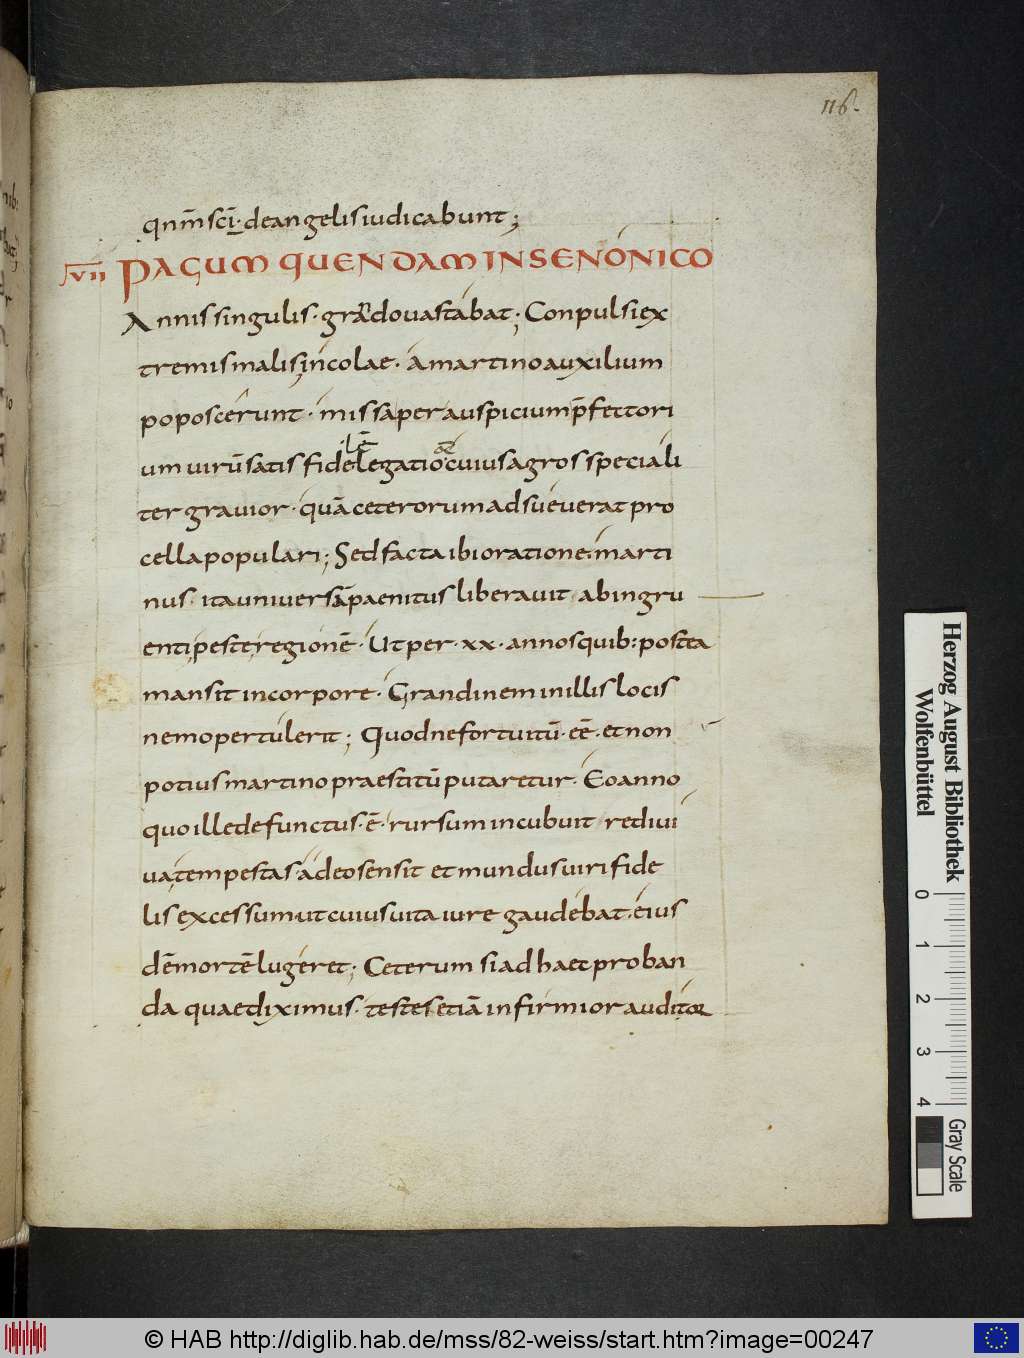 116.
qnm̄ sc̄i · de angelis iudicabunt ;
VII PAGUM QUENDAM IN SENONICO
Annis singulis · grando uastabat ; Conpulsi ex
tremis malis incolae · a martino auxilium
poposcerunt · missa per auspicium p̄fectori
um uirū satis fidelē legatio cuius agros speciali
ter grauior · quā ceterorum adsueuerat pro
cella populari ; Sed facta ibi oratione marti
nus · ita uniuersā paenitus liberauit ab ingru
enti peste regionē · Ut per · xx · annos quib: postea
mansit in corpore · Grandinem in illis locis
nemo pertulerit ; Quod ne fortuitū · eē · et non
potius martino praestitū putaretur · Eo anno
quo ille defunctus · ē · rursum incubuit rediui
ua tempestas · adeo sensit et mundus uiri fide
lis excessum ut cuius uita iure gaudebat · eius
dē mortē lugeret ; Ceterum si ad haec proban
da quae diximus · testes etiā infirmior auditor
Herzog August Bibliothek
Wolfenbüttel
0 1 2 3 4
Gray Scale
© HAB http://diglib.hab.de/mss/82-weiss/start.htm?image=00247